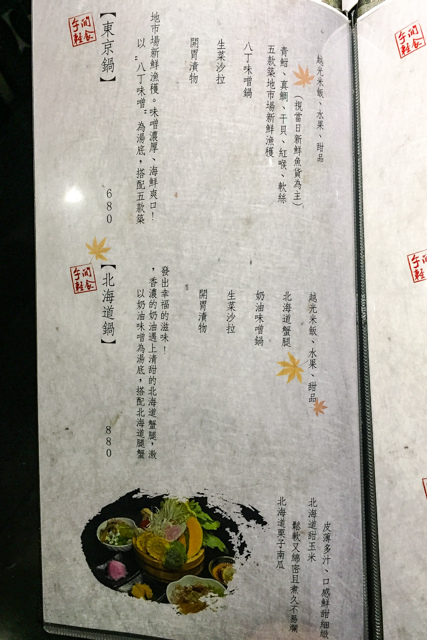 午間輕食
【東京鍋】 680
以“八丁味噌”為湯底，搭配五款築
地市場新鮮漁穫。味噌濃厚、海鮮爽口！
開胃漬物
生菜沙拉
八丁味噌鍋
五款築地市場新鮮漁穫
青魽、真鯛、干貝、紅喉、軟絲
(視當日新鮮魚貨為主)
越光米飯、水果、甜品
午間輕食
【北海道鍋】 880
以奶油味噌為湯底，搭配北海道腿蟹
，香濃的奶油遇上清甜的北海道蟹腿，激
發出幸福的滋味！
開胃漬物
生菜沙拉
奶油味噌鍋
北海道蟹腿
越光米飯、水果、甜品
北海道栗子南瓜
鬆軟又綿密且煮久不易爛
北海道甜玉米
皮薄多汁、口感鮮甜細緻
午間輕食